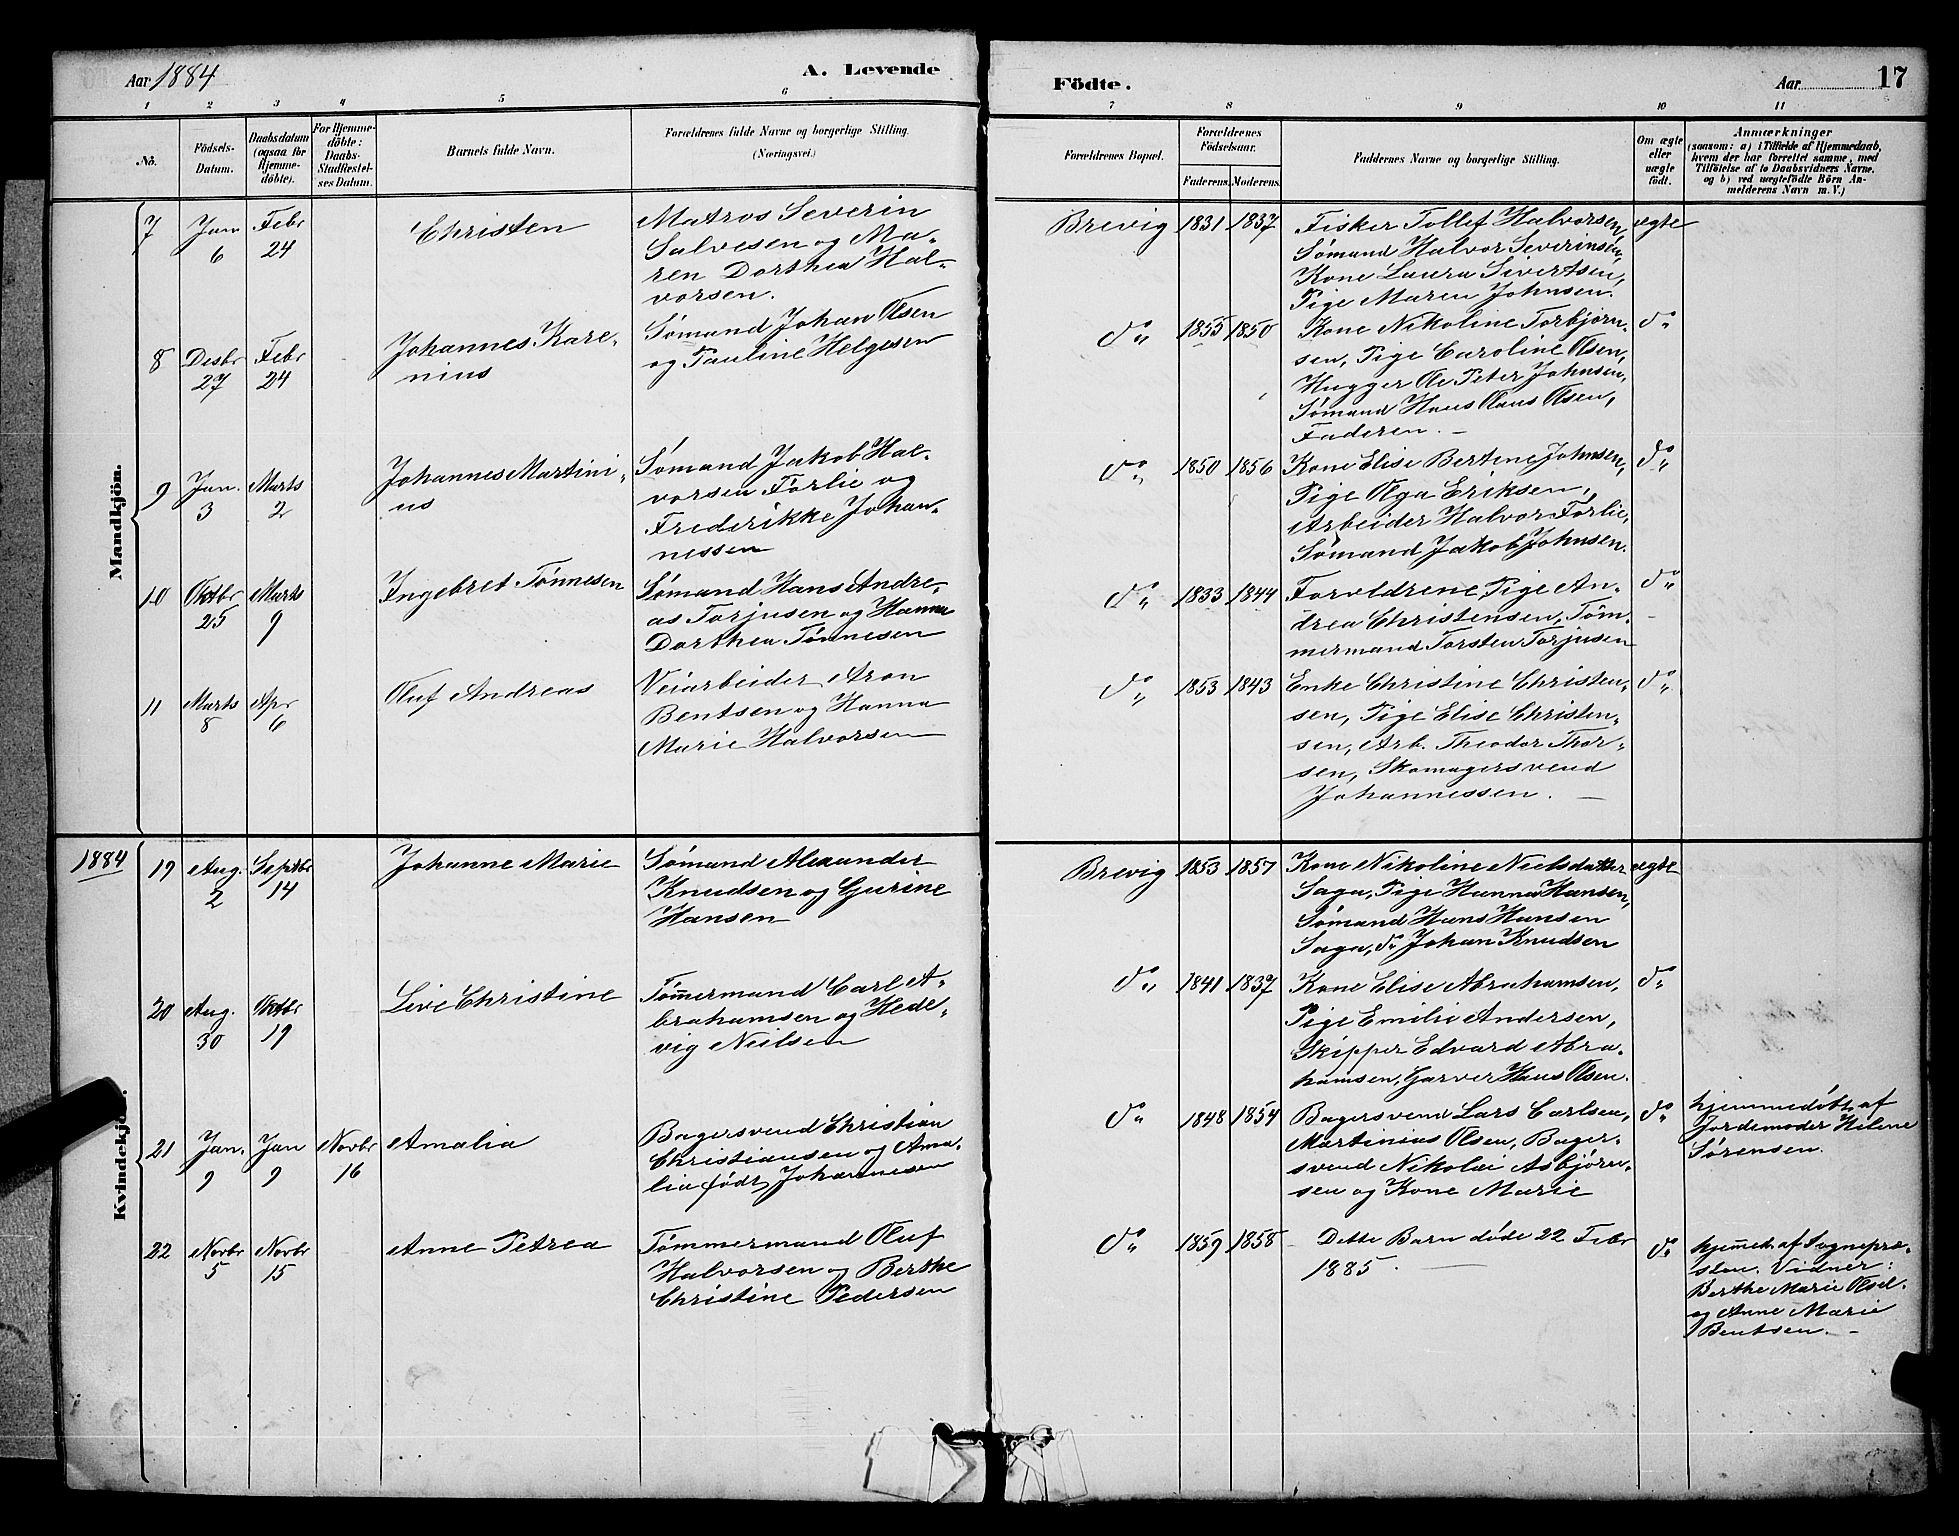 Aar 1884
A. Levende
Födte.
Aar
17
1 2 3 4 5 6 7 8 9 10 11
No.
Födsels-
Datum.
Daabsdatum
(ogsaa for
Hjemme-
döbte).
For Hjemme-
döbte:
Daabs-
Stadfæstel-
ses Datum.
Barnets fulde Navn.
Forældrenes fulde Navne og borgerlige Stilling.
(Næringsvei.)
Forældrenes Bopæl.
Forældrenes
Födselsaar.
Faderens. Moderens.
Faddernes Navne og borgerlige Stilling.
Om ægte
eller
uægte
födt.
Anmærkninger
(saasom: a) i Tilfælde af Hjemmedaab,
hvem der har forrettet samme, med
Tilföielse af to Daabsvidners Navne.
og b) ved uægtefödte Börn An-
melderens Navn m. V.)
Mandkjön.
7
Jan
6
Febr
24
Christen
Matros Severin
Salvesen og Ma-
ren Dorthea Hal-
vorsen.
Brevig 1831 1837
Fisker Tollef Halvorsen,
Sømand Halvor Severinsen,
Kone Laura Sivertsen,
Pige Maren Johnsen.
ægte
8
Desbr
27
Febr
24
Johannes Kare-
nius
Sømand Johan Olsen
og Pauline Helgesen
do 1855 1850
Kone Nikoline Torbjørn-
sen, Pige Caroline Olsen,
Hugger Ole Peter Johnsen,
Sømand Hans Olaus Olsen,
Faderen. —
do
9
Jan.
3
Marts
2
Johannes Martini-
us
Sømand Jakob Hal-
vorsen Førlie og
Frederikke Johan-
nessen
do 1850 1856
Kone Elise Bertine Johnsen,
Pige Olga Eriksen,
Arbeider Halvor Førlie,
Sømand Jakob Johnsen.
do
10
Oktbr
25
Marts
9
Ingebret Tønnesen
Sømand Hans Andre-
as Torjusen og Hanna
Dorthea Tønnesen
do 1833 1844
Forældrene, Pige An-
drea Christensen, Tøm-
mermand Torsten Torjusen
do
11
Marts
8
Apr
6
Oluf Andreas
Veiarbeider Aron
Bentsen og Hanna
Marie Halvorsen
do 1853 1843
Enke Christine Christen-
sen, Pige Elise Christen-
sen, Arb. Theodor Thor-
sen, Skomagersvend
Johannessen. —
do
1884
Kvindekjön.
19
Aug.
2
Septbr
14
Johanne Marie
Sømand Alexander
Knudsen og Gurine
Hansen
Brevig 1853 1857
Kone Nikoline Nielsdatter
Saga, Pige Hanna Hansen,
Sømand Hans Hansen
Saga, do Johan Knudsen
ægte
20
Aug.
30
Oktbr
19
Live Christine
Tømmermand Carl A-
brahamsen og Hede-
vig Nielsen
do 1841 1837
Kone Elise Abrahamsen,
Pige Emilie Andersen,
Skipper Edvard Abra-
hamsen, Garver Hans Olsen.
do
21
Jan.
9
Jan
9
Novbr
16
Amalia
Bagersvend Christian
Christiansen og Ama-
lia født Johannesen
do 1848 1854
Bagersvend Lars Carlsen,
Martinius Olsen, Bager-
svend Nikolai Asbjørn-
sen og Kone Marie
do
hjemmedøbt af
Jordemoder Helene
Sørensen.
22
Novbr
5
Novbr
15
Anne Petrea
Tømmermand Oluf
Halvorsen og Berthe
Christine Pedersen
do 1859 1858
Dette Barn døde 22 Febr
1885. —
do
hjemmed. af Sognepræ-
sten. Vidner:
Berthe Marie Olsd.
og Anne Marie
Bentsen. —